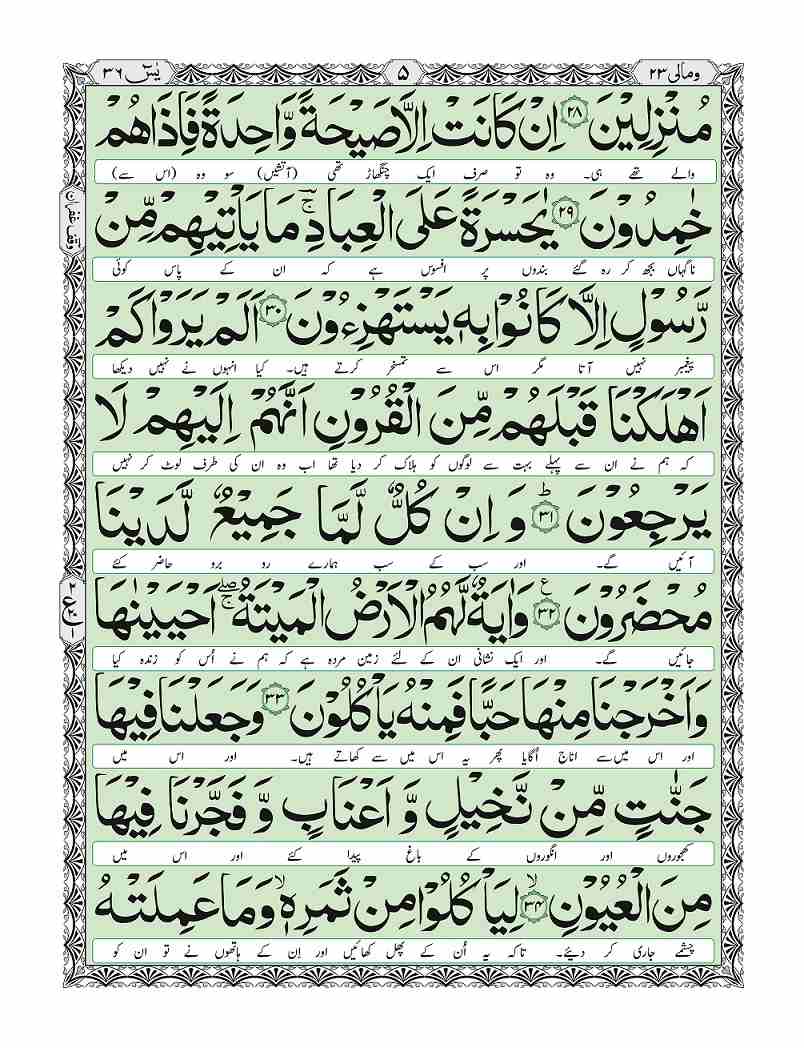 ومالی ۲۳
۵
یٰسٓ ۳۶
مُنْزِلِیْنَ ۲۸ اِنْ كَانَتْ اِلَّا صَیْحَةً وَّاحِدَةً فَاِذَا هُمْ
والے تھے ہی۔ وہ تو صرف ایک چنگھاڑ تھی (آتشیں) سو وہ (اس سے)
خٰمِدُوْنَ ۲۹ یٰحَسْرَةً عَلَی الْعِبَادِ ۚ مَا یَاْتِیْهِمْ مِّنْ
ناگہاں بجھ کر رہ گئے بندوں پر افسوس ہے کہ ان کے پاس کوئی
وقف غفران
رَّسُوْلٍ اِلَّا كَانُوْا بِهٖ یَسْتَهْزِءُوْنَ ۳۰ اَلَمْ یَرَوْا كَمْ
پیغمبر نہیں آتا مگر اس سے تمسخر کرتے ہیں۔ کیا انہوں نے نہیں دیکھا
اَهْلَكْنَا قَبْلَهُمْ مِّنَ الْقُرُوْنِ اَنَّهُمْ اِلَیْهِمْ لَا
کہ ہم نے ان سے پہلے بہت سے لوگوں کو ہلاک کر دیا تھا اب وہ ان کی طرف لوٹ کر نہیں
یَرْجِعُوْنَ ؕ ۳۱ وَ اِنْ كُلٌّ لَّمَّا جَمِیْعٌ لَّدَیْنَا
آئیں گے۔ اور سب کے سب ہمارے رو برو حاضر کئے
مُحْضَرُوْنَ ع ۳۲ وَاٰیَةٌ لَّهُمُ الْاَرْضُ الْمَیْتَةُ ۖۚ اَحْیَیْنٰهَا
جائیں گے۔ اور ایک نشانی ان کے لئے زمین مردہ ہے کہ ہم نے اُس کو زندہ کیا
۲
ع
۱
وَاَخْرَجْنَا مِنْهَا حَبًّا فَمِنْهُ یَاْكُلُوْنَ ۳۳ وَجَعَلْنَا فِیْهَا
اور اس میں سے اناج اُگایا پھر یہ اس میں سے کھاتے ہیں۔ اور اس میں
جَنّٰتٍ مِّنْ نَّخِیْلٍ وَّ اَعْنَابٍ وَّ فَجَّرْنَا فِیْهَا
کھجوروں اور انگوروں کے باغ پیدا کئے اور اس میں
مِنَ الْعُیُوْنِ ۙ ۳۴ لِیَاْكُلُوْا مِنْ ثَمَرِهٖ ۙ وَمَا عَمِلَتْهُ
چشمے جاری کر دیئے۔ تاکہ یہ اُن کے پھل کھائیں اور اِن کے ہاتھوں نے تو ان کو